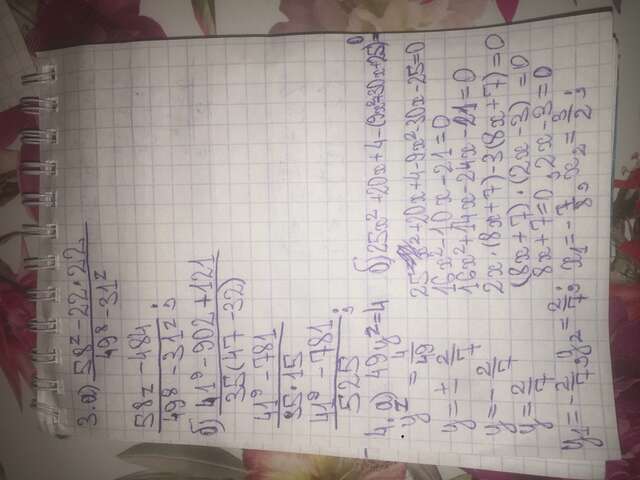 3.а) 58² - 22·22
49⁸ - 31²
58² - 484 ;
49⁸ - 31² ;
б) 41⁹ - 902 + 121
35(47 - 32)
41⁹ - 781
35·15
41⁹ - 781 ;
525
4. а) 49y² = 4
y² = 4/49
y = ± 2/7
y = - 2/7
y = 2/7
y₁ = - 2/7, y₂ = 2/7;
б) 25x² + 20x + 4 - (9x² + 30x + 25) = 0
25x² + 20x + 4 - 9x² - 30x - 25 = 0
16x² - 10x - 21 = 0
16x² + 14x - 24x - 21 = 0
2x·(8x + 7) - 3(8x + 7) = 0
(8x + 7)·(2x - 3) = 0
8x + 7 = 0, 2x - 3 = 0
x₁ = - 7/8, x₂ = 3/2;